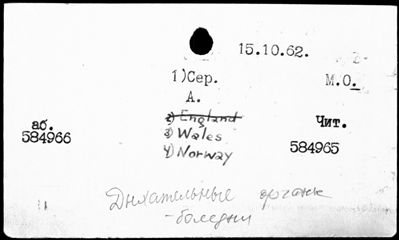 15.10.62.
1) Сер. М.О.
А.
2) England Чит.
аб. 3) Wales
584966 584965
4) Norway
Дыхательные органы
- болезни